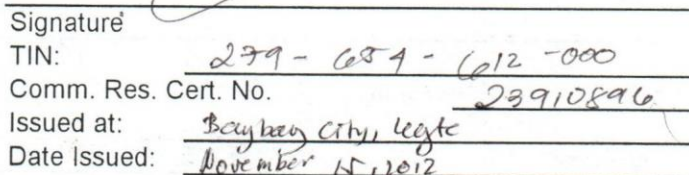 Signature
TIN: 279 - 654 - 612 - 000
Comm. Res. Cert. No. 23910896
Issued at: Baybay City, Leyte
Date Issued: November 15, 2012